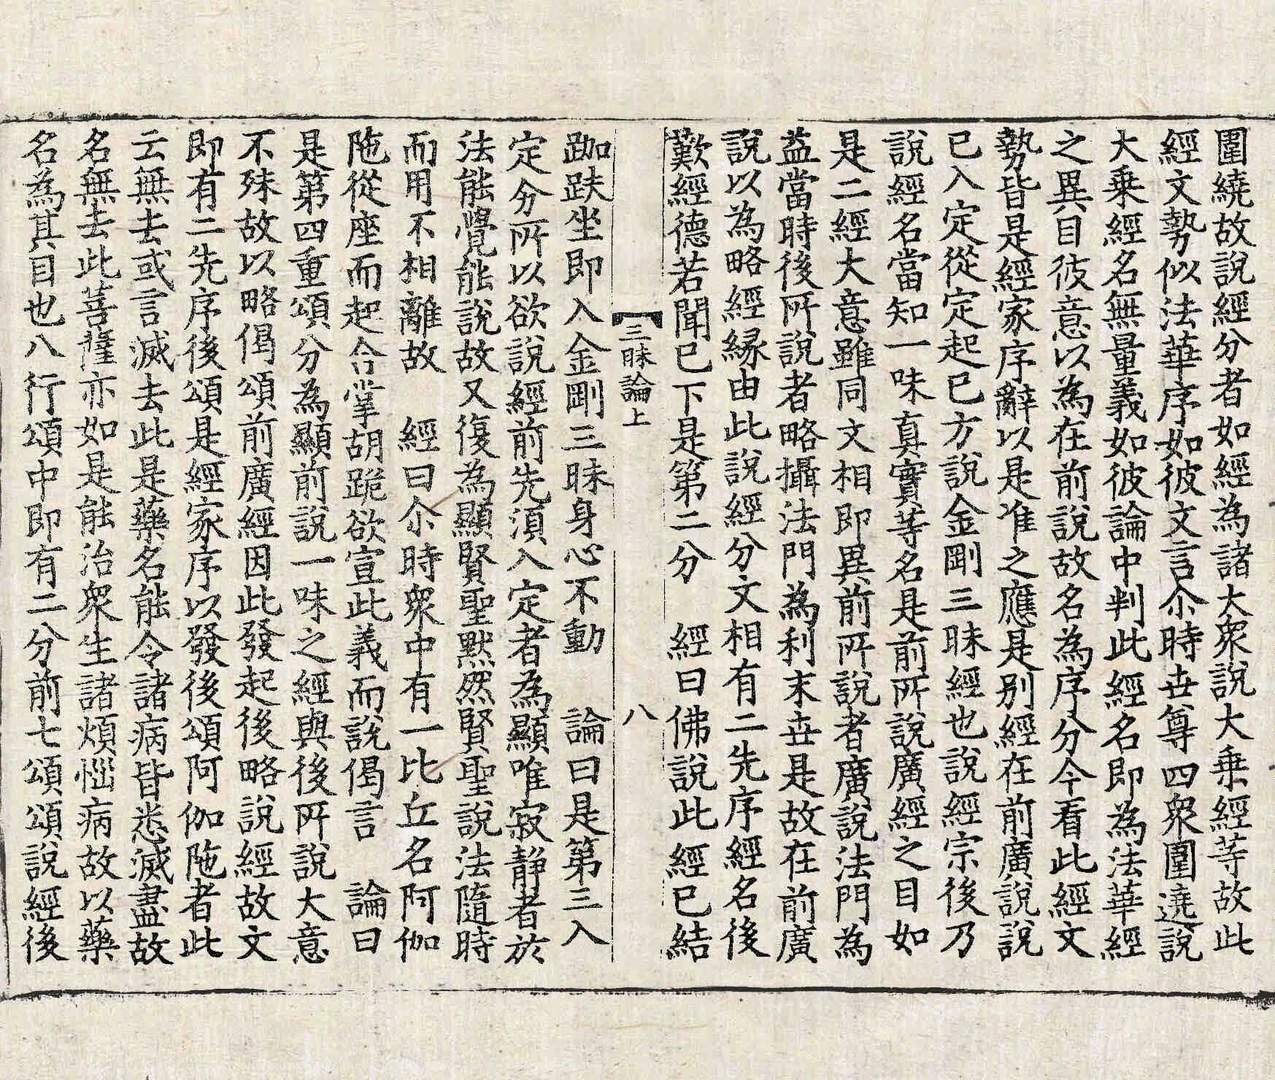 圍繞故說經分者如經為諸大衆說大乗經等故此
經文勢似法華序如彼文言尒時世尊四衆圍遶說
大乗經名無量義如彼論中判此經名即為法華經
之異目彼意以為在前說故名為序分今看此經文
勢皆是經家序辭以是准之應是別經在前廣說說
已入定從定起已方說金剛三昧經也說經宗後乃
說經名當知一味真實等名是前所說廣經之目如
是二經大意雖同文相即異前所說者廣說法門為
益當時後所說者略攝法門為利末世是故在前廣
說以為略經縁由此說經分文相有二先序經名後
歎經德若聞已下是第二分　經曰佛說此經已結
三昧論上　八
跏趺坐即入金剛三昧身心不動　論曰是第三入
定分所以欲說經前先湏入定者為顯唯寂靜者於
法能覺能說故又復為顯賢聖默然賢聖說法隨時
而用不相離故　經曰尒時衆中有一比丘名阿伽
陁從座而起合掌胡跪欲宣此義而說偈言　論曰
是第四重頌分為顯前說一味之經與後所說大意
不殊故以略偈頌前廣經因此發起後略說經故文
即有二先序後頌是經家序以發後頌阿伽陁者此
云無去或言滅去此是藥名能令諸病皆悉滅盡故
名無去此菩薩亦如是能治衆生諸煩惱病故以藥
名為其目也八行頌中即有二分前七頌頌說經後